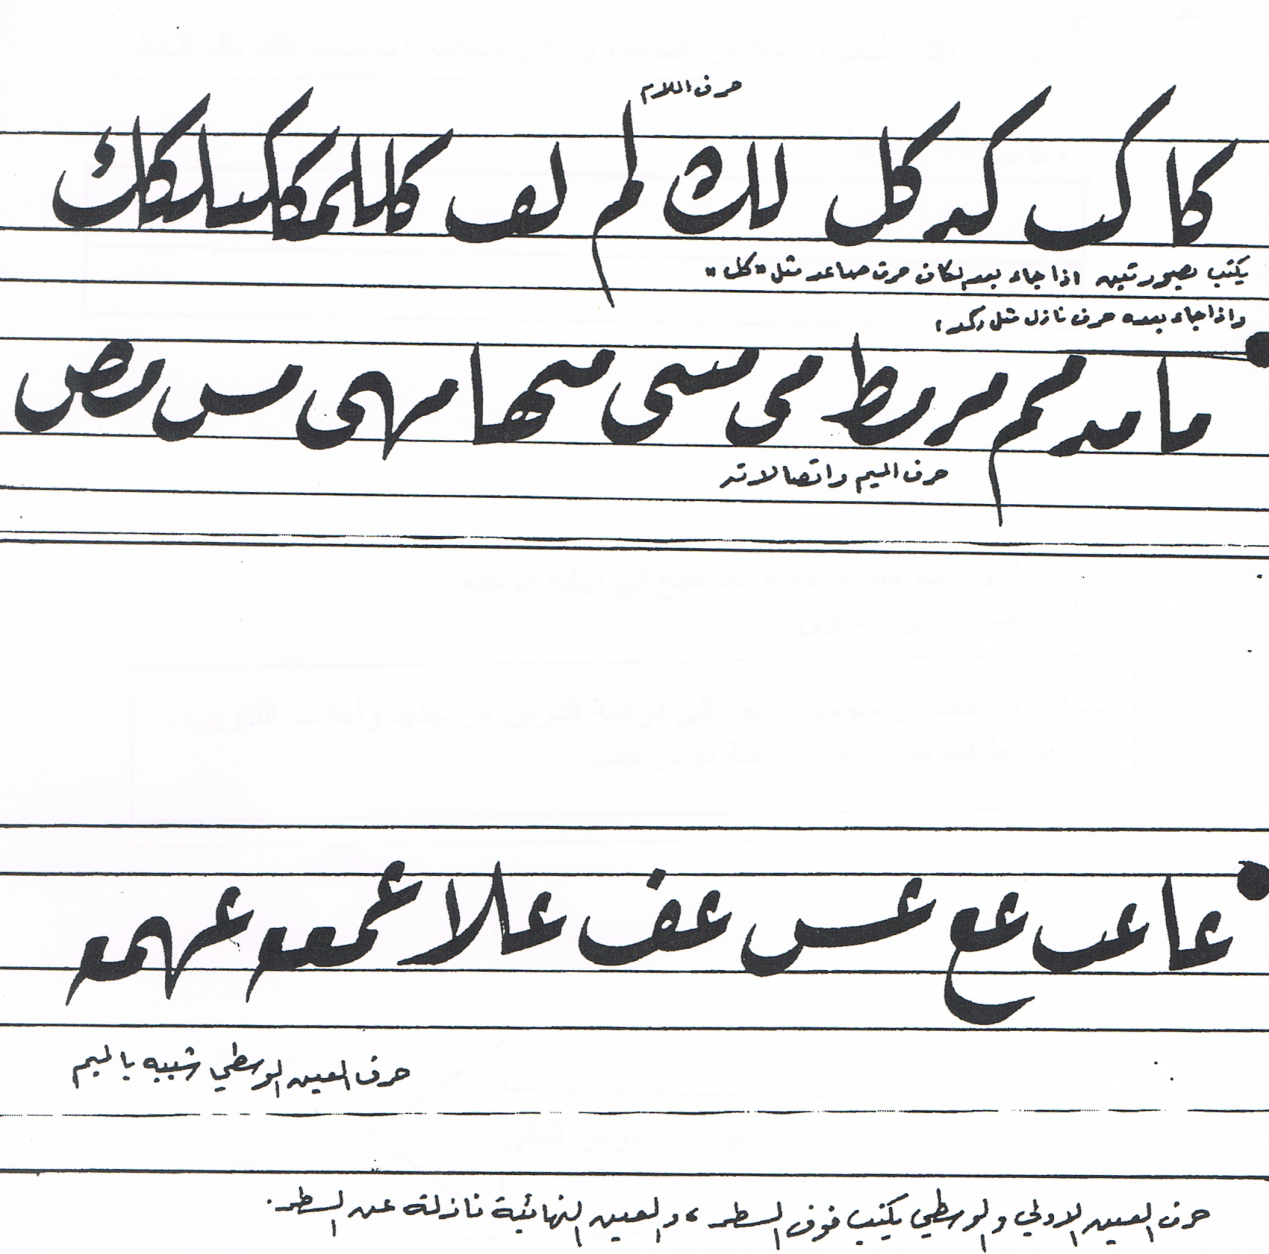 حرف اللام
كا كب كد كل لك لم لف
يكتب بصورتين اذا جاء بعد لكاف حرف صاعد مثل «كل»
واذا جاء بعده حرف نازل مثل كد
ما مد مم مر مط مي مسى مها مهى مس مص
حرف الميم واتصالاته
عا عب عع عس عف علا
حرف العين الوسطي شبيه بالميم
حرف العين الاولي والوسطي يكتب فوق السطر، والعين النهائية نازلة عن السطر.